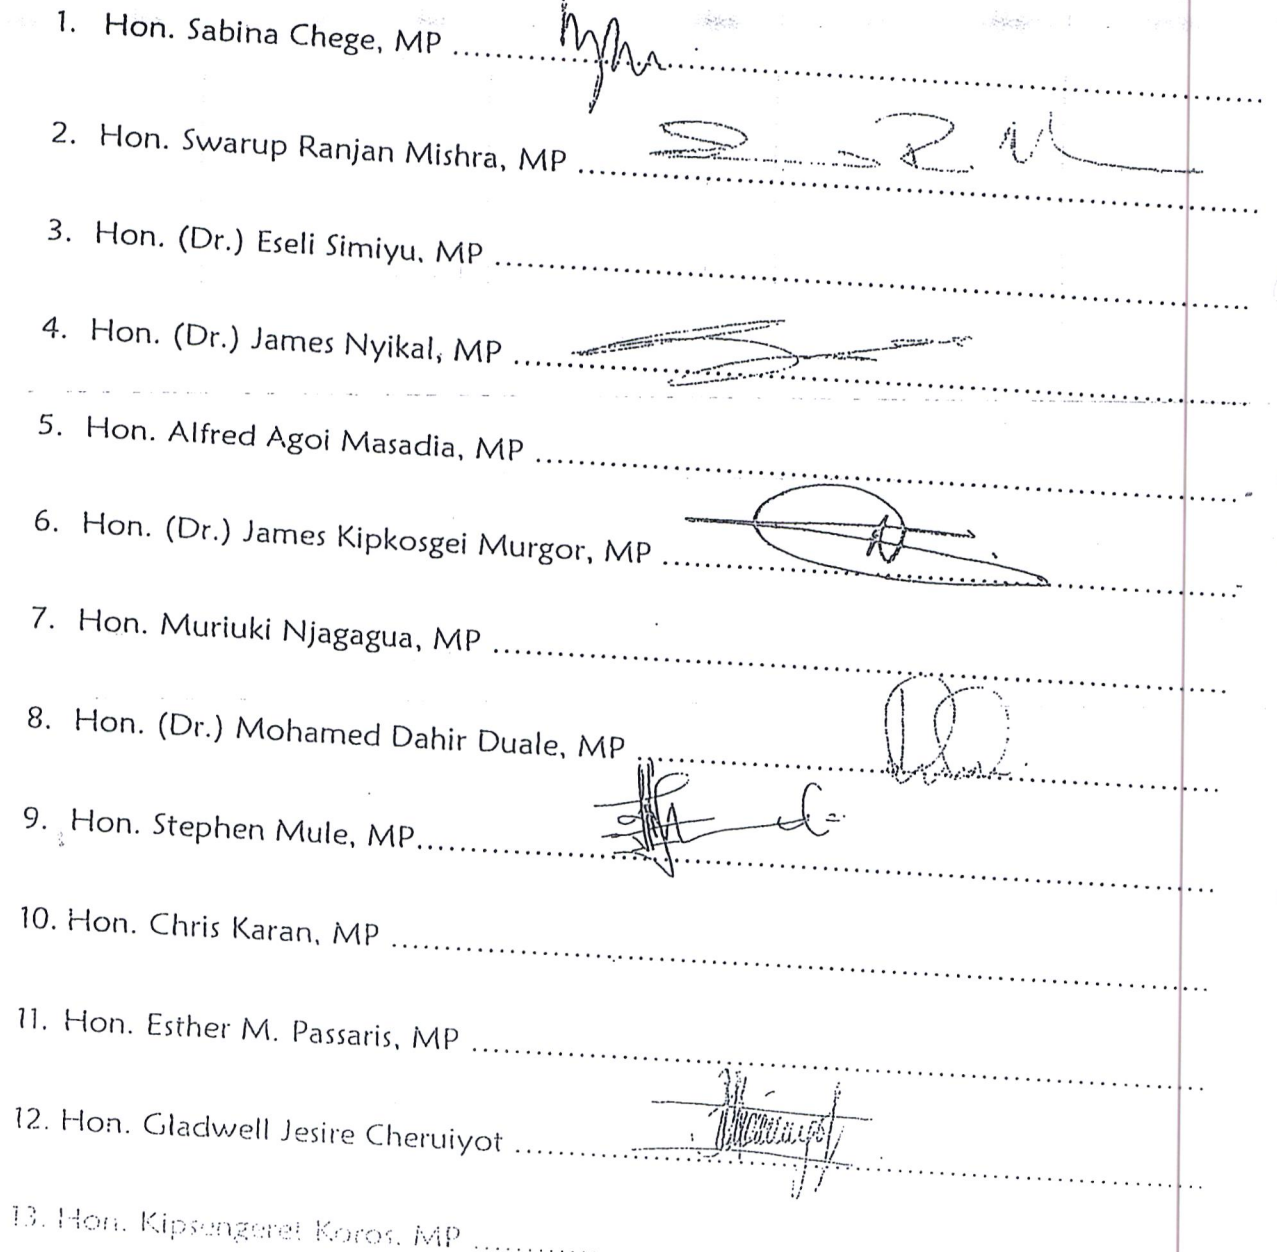 1. Hon. Sabina Chege, MP ..........
2. Hon. Swarup Ranjan Mishra, MP ..........
3. Hon. (Dr.) Eseli Simiyu, MP ..........
4. Hon. (Dr.) James Nyikal, MP ..........
5. Hon. Alfred Agoi Masadia, MP ..........
6. Hon. (Dr.) James Kipkosgei Murgor, MP ..........
7. Hon. Muriuki Njagagua, MP ..........
8. Hon. (Dr.) Mohamed Dahir Duale, MP ..........
9. Hon. Stephen Mule, MP..........
10. Hon. Chris Karan, MP ..........
11. Hon. Esther M. Passaris, MP ..........
12. Hon. Gladwell Jesire Cheruiyot ..........
13. Hon. Kipsengeret Koros, MP ..........